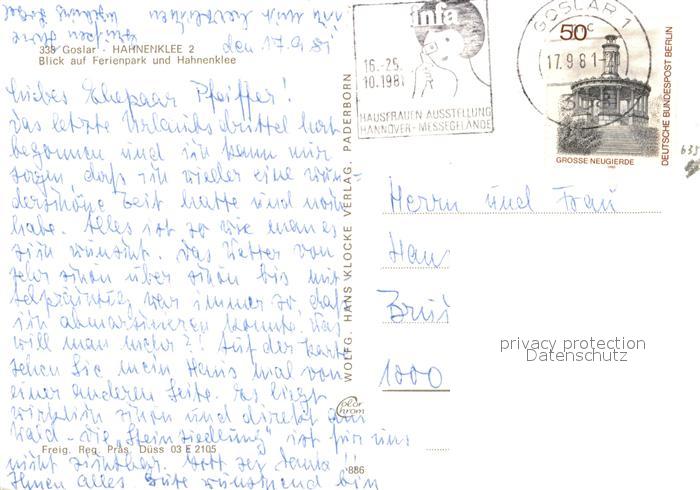 338 Goslar - HAHNENKLEE 2
Blick auf Ferienpark und Hahnenklee
den 17.9.81
Liebes Ehepaar Pfeiffer!
Das letzte Urlaubsdrittel hat
begonnen und ich kann nur
sagen daß ich wieder eine wun=
derschöne Zeit hatte und noch
habe. Alles ist so wie man es
sich wünscht. Das Wetter von
sehr schön über schön bis mit
immer so, daß
ich abmarschieren konnte. Was
will man mehr?! Auf der Karte
sehen Sie mein Haus mal von
einer anderen Seite. Es liegt
wirklich schön und direkt am
Wald - die "Steinsiedlung" ist für uns
nicht sichtbar. Gott sei Dank!!
Ihnen alles Gute wünschend bin
ich
Freig. Reg. Präs. Düss 03 E 2105
886
WOLFG. HANS KLOCKE VERLAG, PADERBORN
Color
Chrom
infa
16.-25.
10.1981
HAUSFRAUEN AUSSTELLUNG
HANNOVER-MESSEGELÄNDE
GOSLAR 1
17.9.81
50
GROSSE NEUGIERDE
DEUTSCHE BUNDESPOST BERLIN
635
Herrn und Frau
Hans
1000
privacy protection
Datenschutz